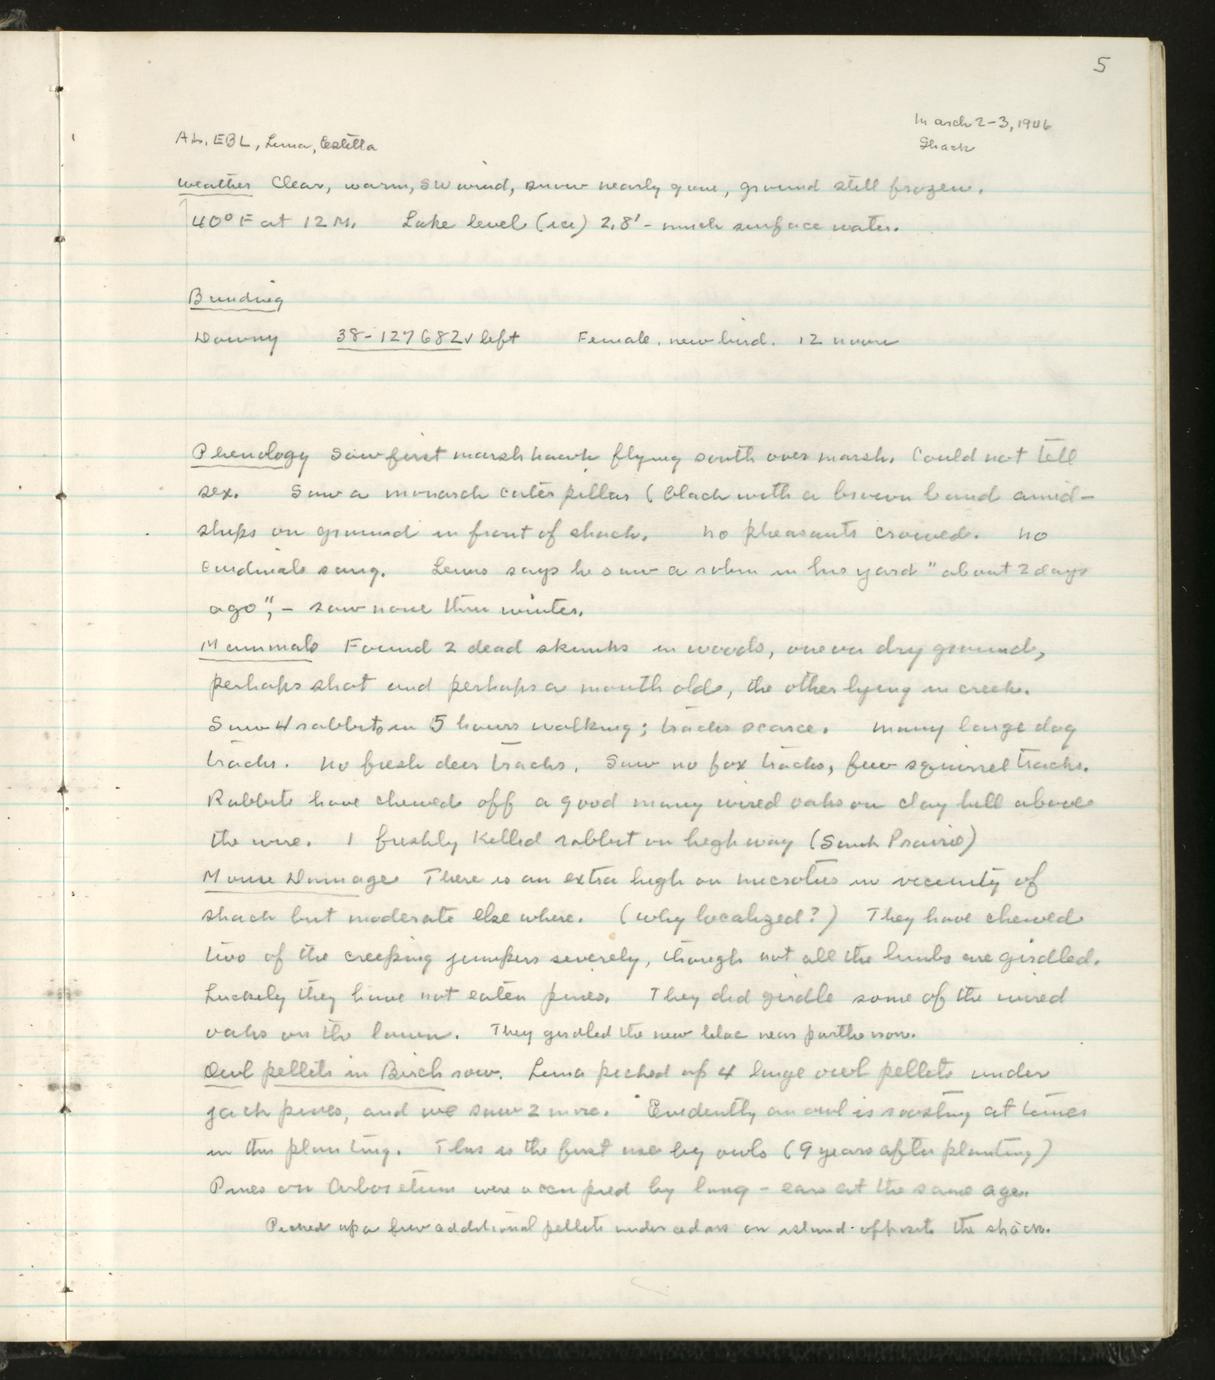 5
March 2-3, 1946
AL, EBL, Luna, Estella
Shack
Weather Clear, warm, SW wind, snow nearly gone, ground still frozen.
40° F at 12 M. Lake level (ice) 2.8' - much surface water.
Banding
Downy 38-127682 √ left Female, new bird. 12 noon
Phenology Saw first marsh hawk flying south over marsh. Could not tell
sex. Saw a monarch caterpillar (black with a brown band amid-
ships on ground in front of shack. No pheasants crowed. No
cardinals sang. Lewis says he saw a robin in his yard "about 2 days
ago", - saw none thru winter.
Mammals Found 2 dead skunks in woods, one on dry ground,
perhaps shot and perhaps a month old, the other lying in creek.
Saw 4 rabbits in 5 hours walking; tracks scarce. Many large dog
tracks. No fresh deer tracks. Saw no fox tracks, few squirrel tracks.
Rabbits have chewed off a good many wired oaks on clay hill above
the wire. 1 freshly killed rabbit on highway (Sauk Prairie)
Mouse Damage There is an extra high on microtus in vicinity of
shack but moderate elsewhere. (why localized?) They have chewed
two of the creeping junipers severely, though not all the limbs are girdled.
Luckily they have not eaten pines. They did girdle some of the wired
oaks on the lawn. They girdled the new lilac near parthenon.
Owl pellets in Birch row. Luna picked up 4 large owl pellets under
jack pines, and we saw 2 more. Evidently an owl is roosting at times
in this planting. This is the first use by owls (9 years after planting)
Pines on Arboretum were occupied by long-ears at the same age.
Picked up a few additional pellets under cedars on island opposite the shack.